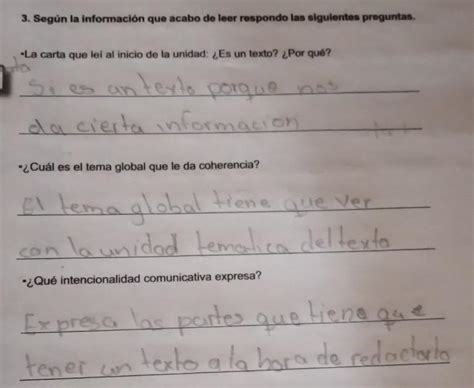 3. Según la información que acabo de leer respondo las siguientes preguntas.
•La carta que leí al inicio de la unidad: ¿Es un texto? ¿Por qué?
Si es un texto porque nos
da cierta informacion
•¿Cuál es el tema global que le da coherencia?
El tema global tiene que ver
con la unidad tematica del texto
•¿Qué intencionalidad comunicativa expresa?
Expresa las partes que tiene que
tener un texto a la hora de redactarlo